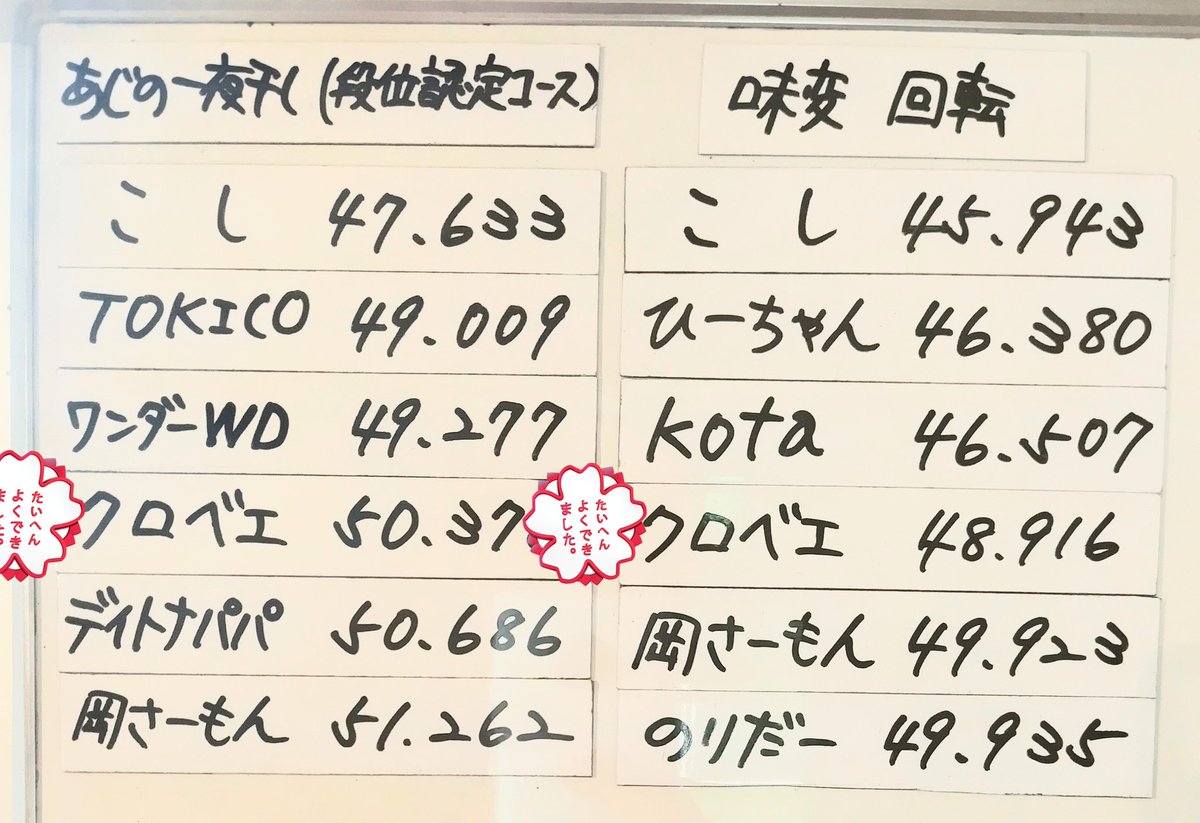 あじの一夜干し(段位認定コース)
こし 47.633
TOKICO 49.009
ワンダーWD 49.277
クロベエ 50.37
ディトナパパ 50.686
岡さーもん 51.262
味変 回転
こし 45.943
ひーちゃん 46.380
kota 46.507
クロベエ 48.916
岡さーもん 49.923
のりだー 49.935
たいへん
よくでき
ました。
たいへん
よくでき